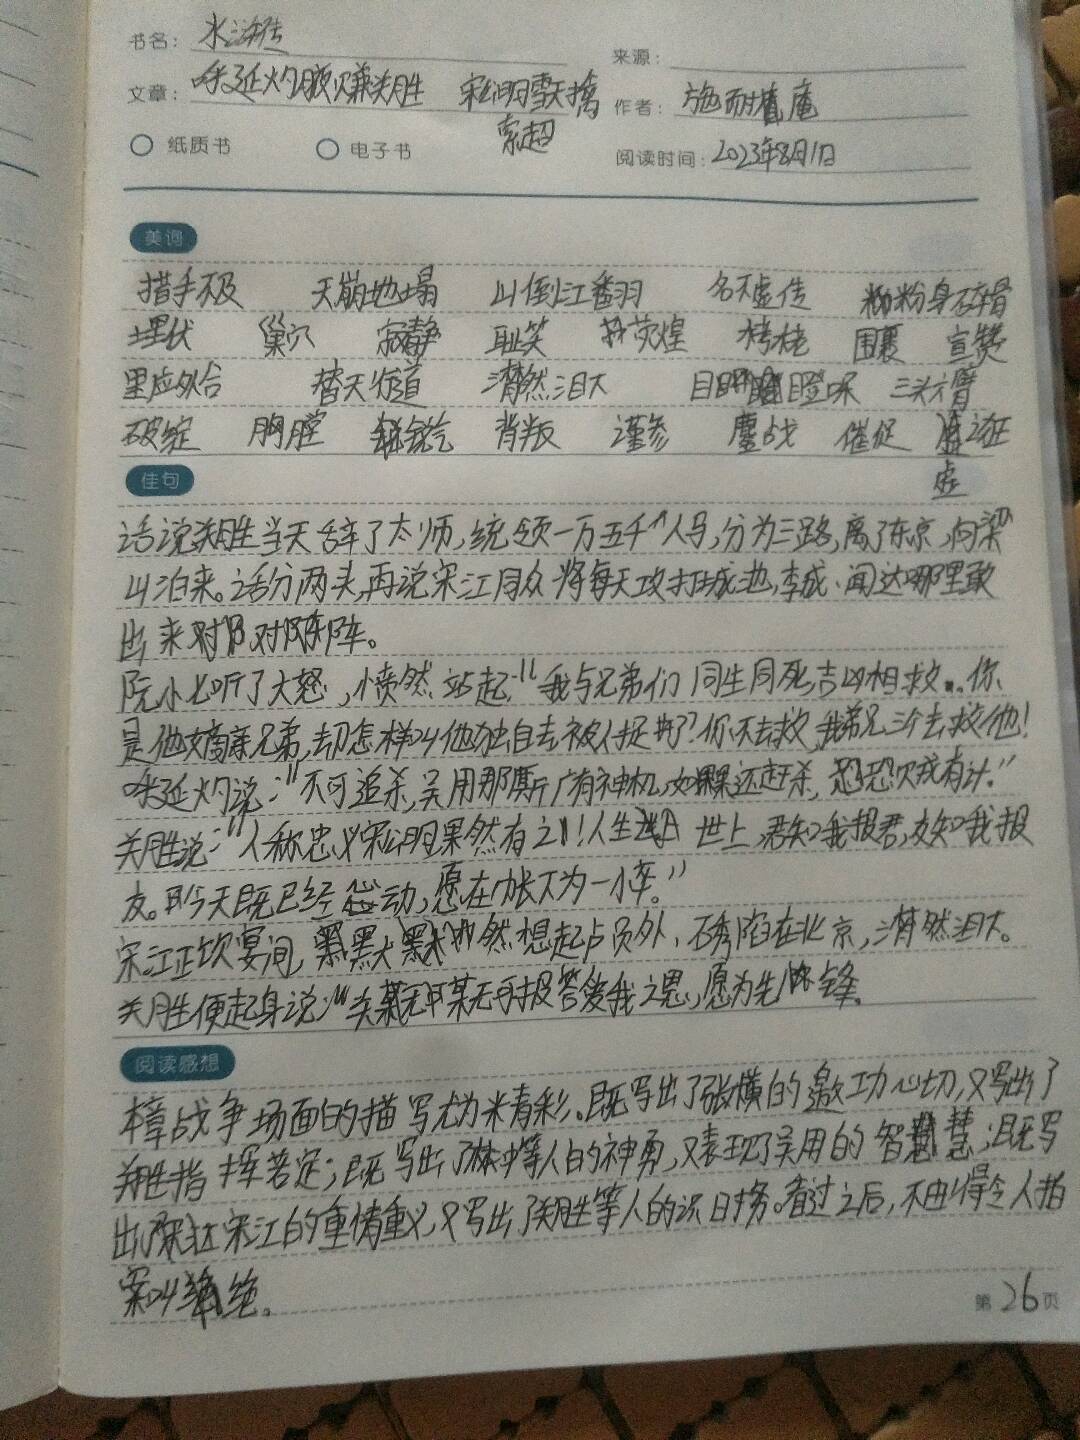 书名: 水浒传
来源:
文章: 呼延灼月夜赚关胜 宋公明雪天擒
索超
作者: 施耐庵
纸质书 电子书 阅读时间: 2023年8月1日
美词
措手不及 天崩地塌 山倒江翻 名不虚传 粉身碎骨
埋伏 巢穴 寂静 耻笑 辉煌 栲栳 围裹 宣赞
里应外合 替天行道 潸然泪下 目瞪口呆 三头六臂
破绽 胸膛 锐气 背叛 谨参 鏖战 催促 诳
虚
佳句
话说关胜当天辞了太师,统领一万五千个人马,分为三路,离了东京,向梁
山泊来。话分两头,再说宋江同众将每天攻打城池,李成、闻达哪里敢
出来对阵。
阮小七听了大怒,愤然站起:"我与兄弟们同生同死,吉凶相救。你
是他嫡亲兄弟,却怎样叫他独自去被人捉了?你不去救,我弟兄三个去救他!
呼延灼说:"不可追杀,吴用那厮广有神机,如果还赶杀,恐贼有计。"
关胜说:"人称忠义宋公明果然有之!人生世上,君知我报君,友知我报
友。今天既已经心动,愿在帐下为一小卒。"
宋江正饮宴间,默然想起卢员外、石秀陷在北京,潸然泪下。
关胜便起身说:"关某无可报答爱我之恩,愿为先锋。
阅读感想
本章战争场面的描写尤为精彩。既写出了张横的邀功心切,又写出了
关胜指挥若定;既写出了林冲等人的神勇,又表现了吴用的智慧;既写
出了宋江的重情重义,又写出了关胜等人的识时务。看过之后,不由得令人拍
案叫绝。
第 26 页